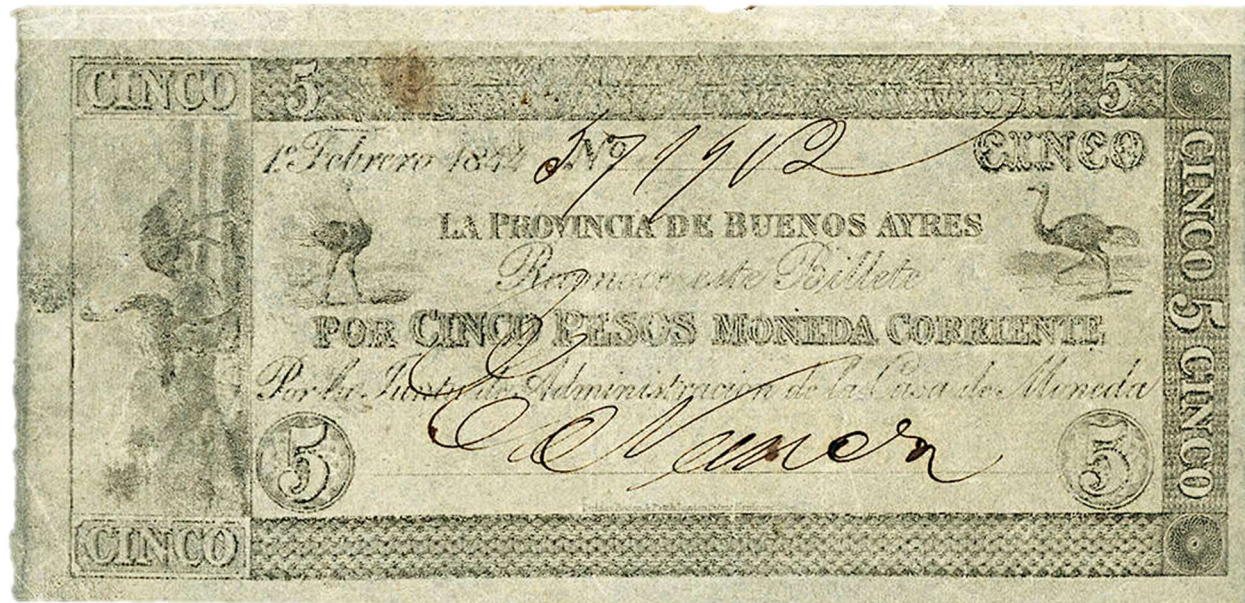 CINCO 5 5
1º Febrero 1844 Nº 571902 CINCO
LA PROVINCIA DE BUENOS AYRES
Reconoce este Billete
POR CINCO PESOS MONEDA CORRIENTE
Por la Junta de Administracion de la Casa de Moneda
5 5
CINCO
CINCO 5 CINCO